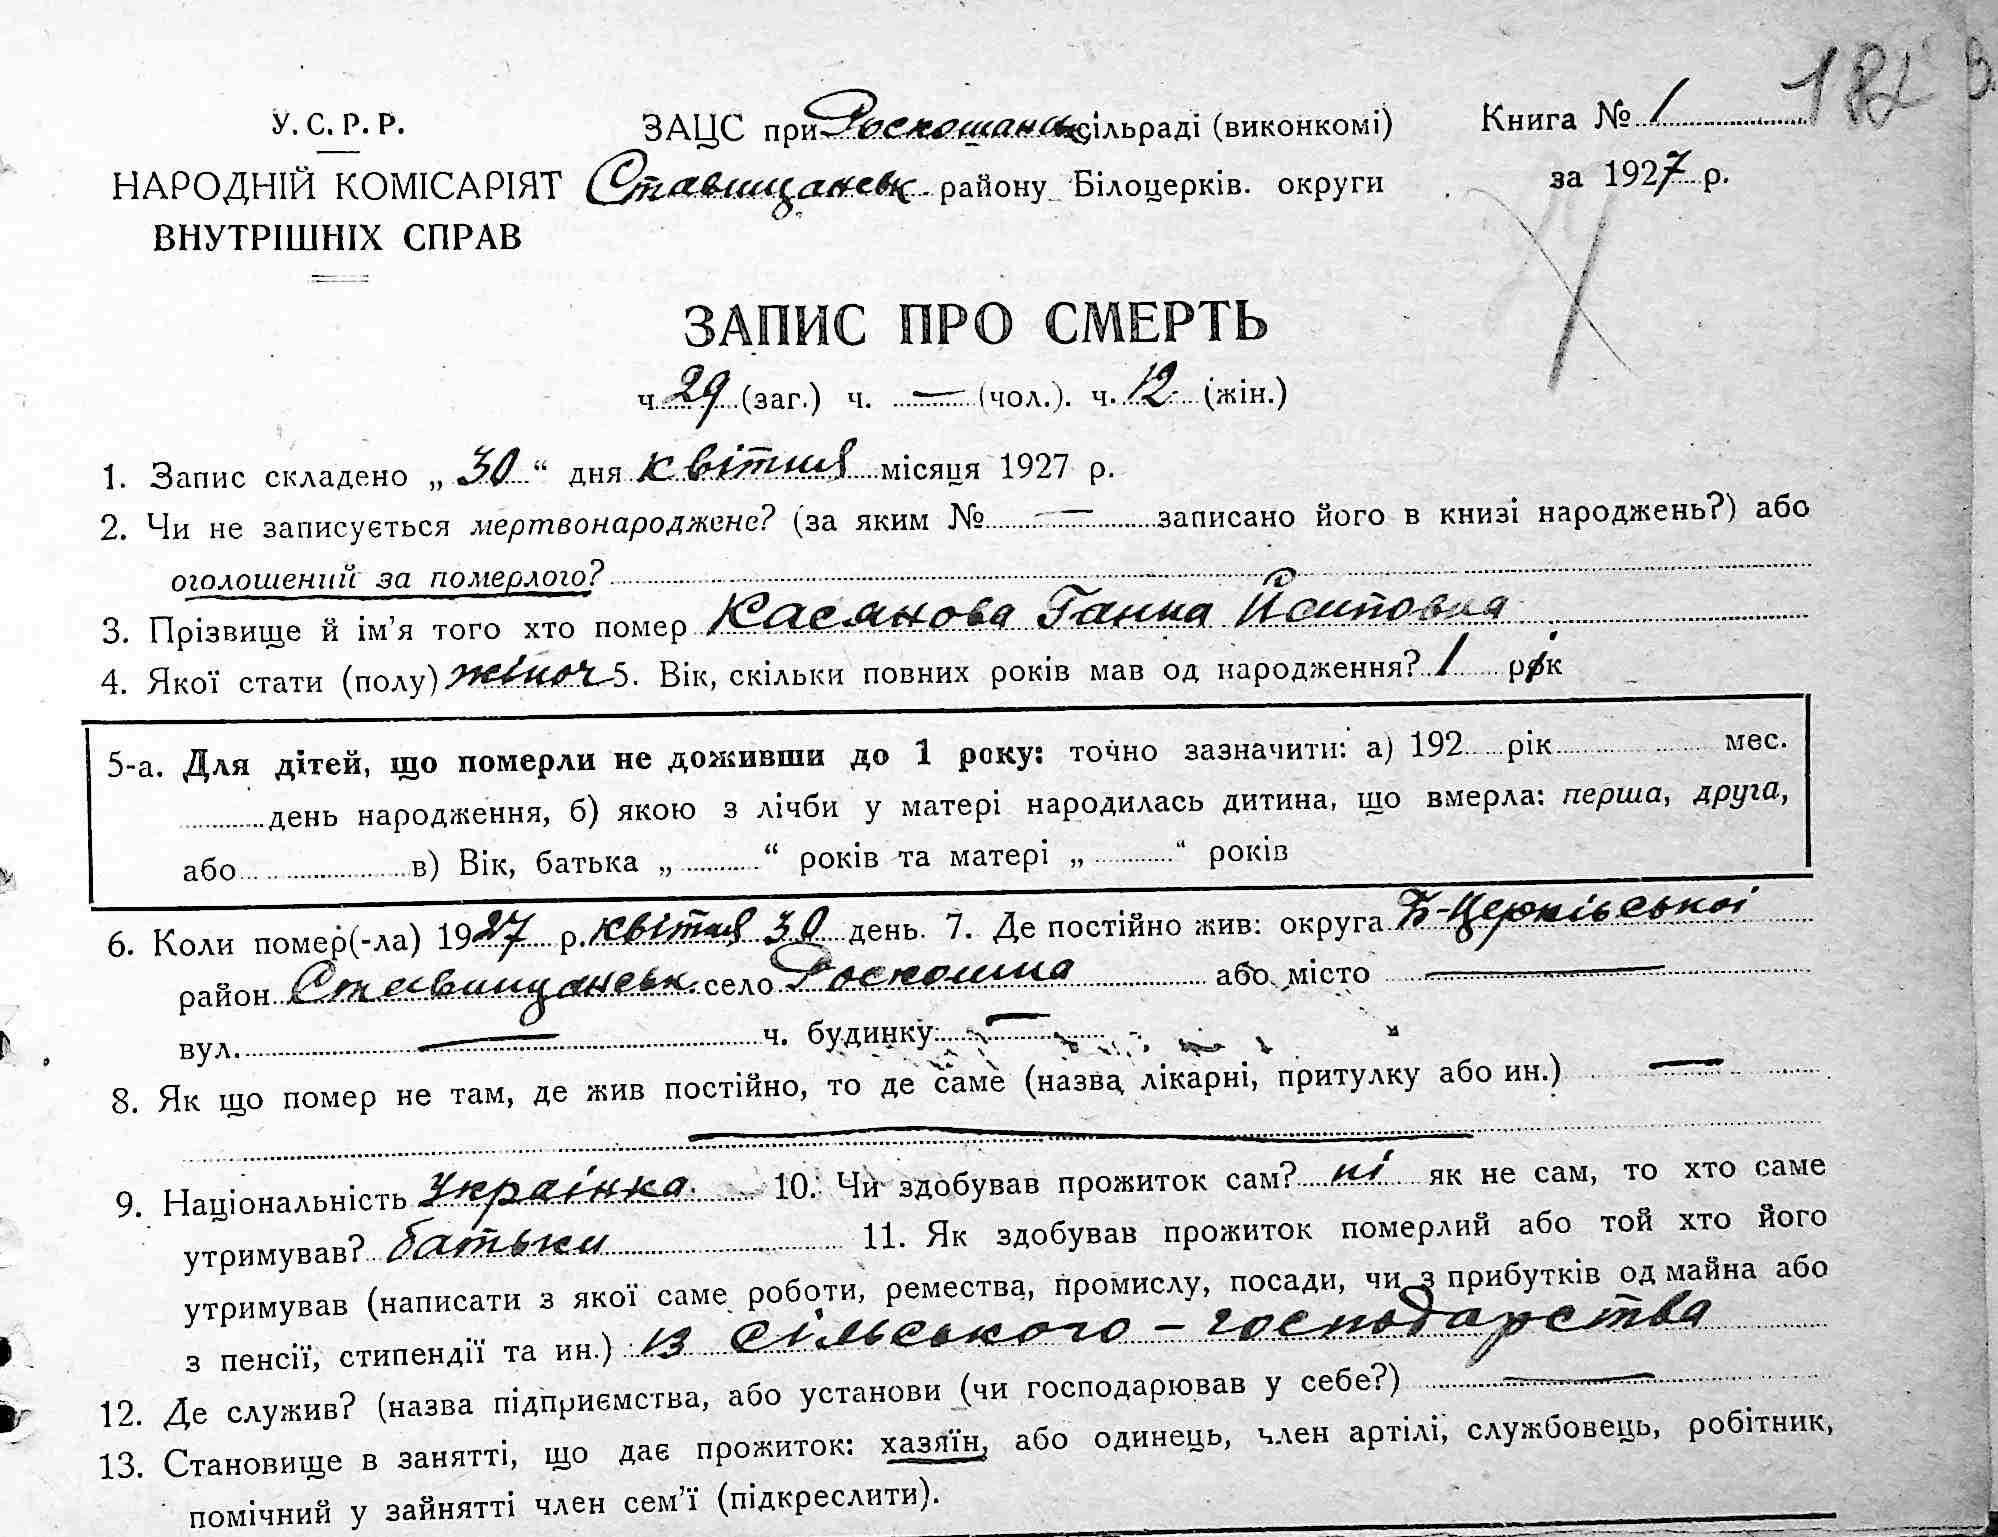 182
У. С. Р. Р.
НАРОДНІЙ КОМІСАРІЯТ
ВНУТРІШНІХ СПРАВ
ЗАЦС при Роскошанськ сільраді (виконкомі)
Ставищанськ району Білоцерків. округи
Книга № 1
за 1927 р.
ЗАПИС ПРО СМЕРТЬ
ч. 29 (заг.) ч. — (чол.). ч. 12 (жін.)
1. Запис складено „ 30 “ дня квітня місяця 1927 р.
2. Чи не записується мертвонароджене? (за яким № — записано його в книзі народжень?) або
оголошений за померлого?
3. Прізвище й ім’я того хто помер Касянова Ганна Йсиповна
4. Якої стати (полу) жіноч 5. Вік, скільки повних років мав од народження? 1 рік
5-а. Для дітей, що померли не доживши до 1 року: точно зазначити: а) 192 рік мес.
день народження, б) якою з лічби у матері народилась дитина, що вмерла: перша, друга,
або в) Вік, батька „ “ років та матері „ “ років
6. Коли помер(-ла) 1927 р. квітня 30 день. 7. Де постійно жив: округа Б-Церківської
район Ставищанськ. село Роскошна або місто —
вул. — ч. будинку —
8. Як що помер не там, де жив постійно, то де саме (назва лікарні, притулку або ин.) —
—
9. Національність Українка. 10. Чи здобував прожиток сам? ні як не сам, то хто саме
утримував? батьки 11. Як здобував прожиток померлий або той хто його
утримував (написати з якої саме роботи, ремества, промислу, посади, чи з прибутків од майна або
з пенсії, стипендії та ин.) із сільського - господарства
12. Де служив? (назва підприємства, або установи (чи господарював у себе?) —
13. Становище в занятті, що дає прожиток: хазяїн, або одинець, член артілі, службовець, робітник,
помічний у зайнятті член сем’ї (підкреслити).